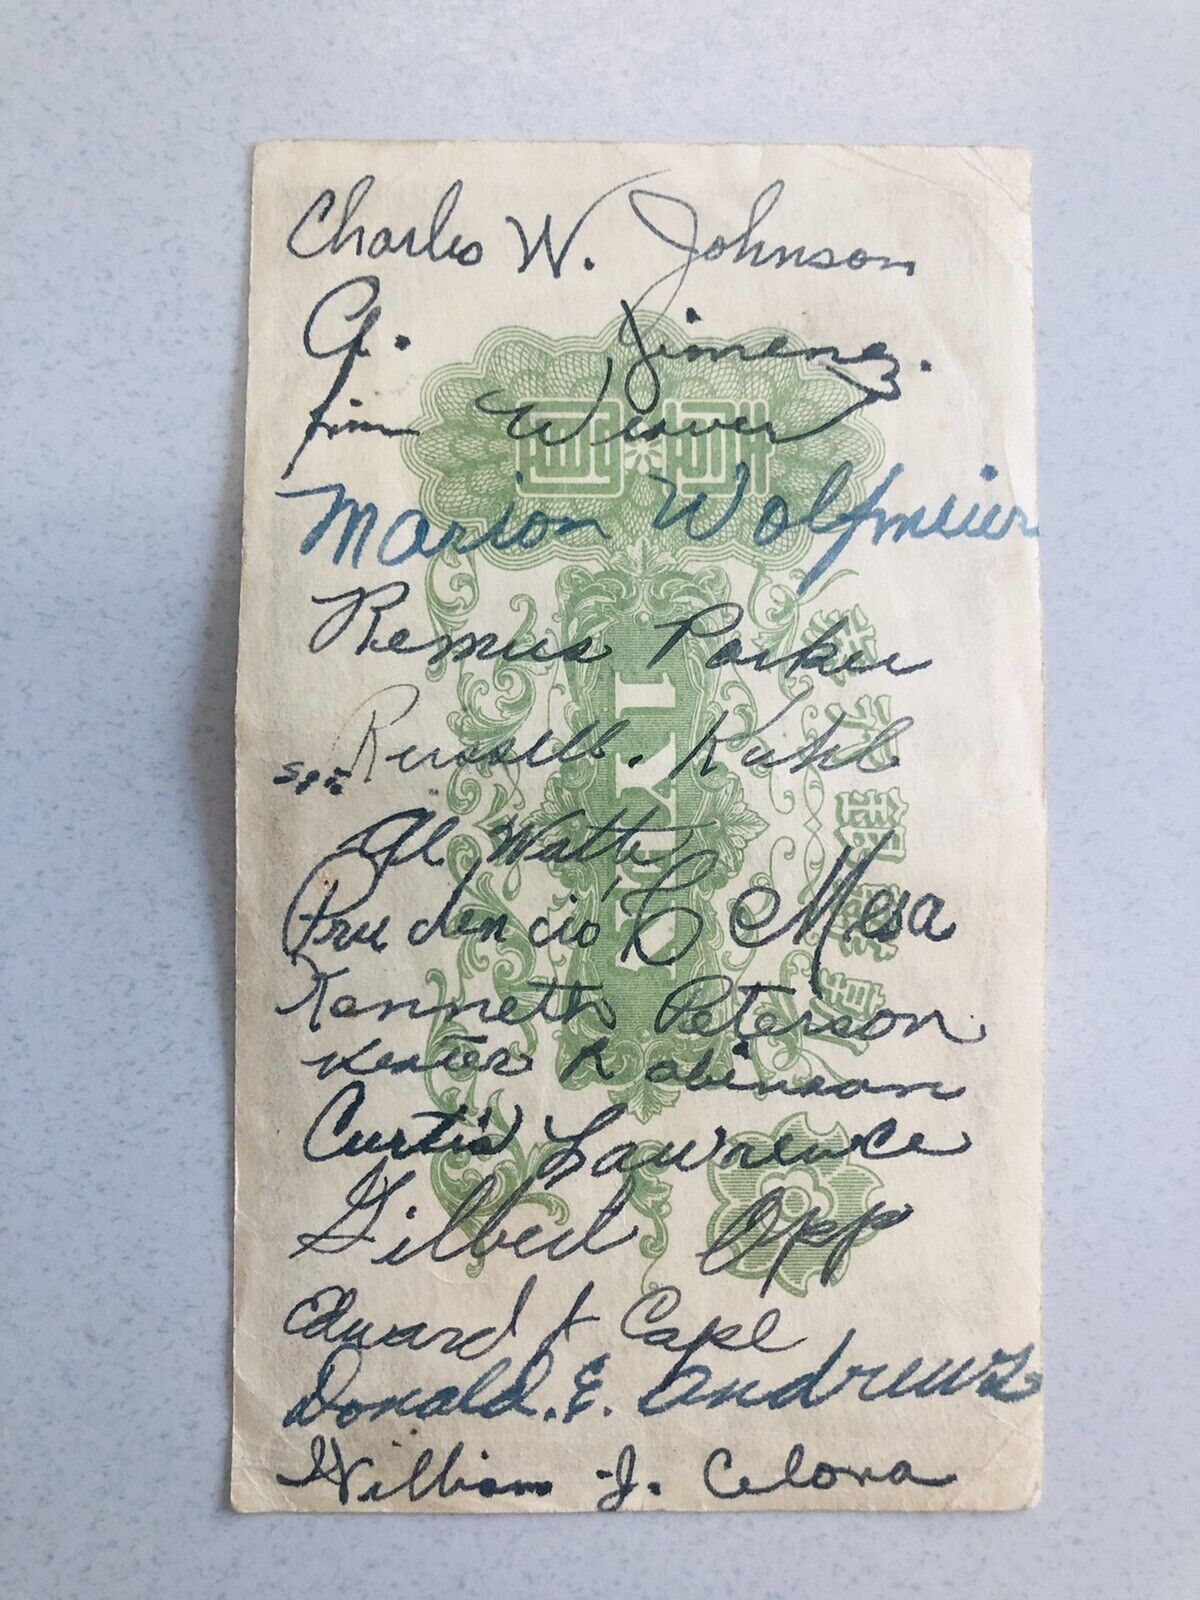 Charles W. Johnson
A. Jimenez.
Jim Weaver
Marion Wolfmeier
Remus Parker
Russell. Kuhl
Al Watts
Prudencio C Mesa
Kenneth Peterson
Robinson
Curtis Lawrence
Gilbert Opp
Edward J Cape
Donald. E. Andrews
William J. Celona
1 YEN